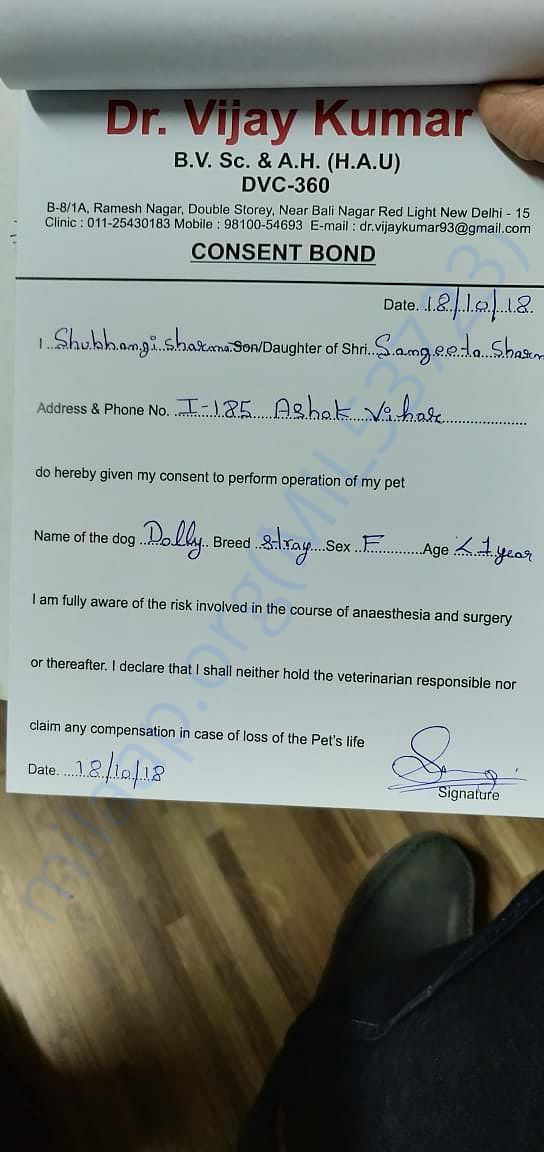 Dr. Vijay Kumar
B.V. Sc. & A.H. (H.A.U)
DVC-360
B-8/1A, Ramesh Nagar, Double Storey, Near Bali Nagar Red Light New Delhi - 15
Clinic : 011-25430183 Mobile : 98100-54693 E-mail : dr.vijaykumar93@gmail.com
CONSENT BOND
Date. 18/10/18
I Shubhangi Sharma Son/Daughter of Shri. Sangeeta Sharm
Address & Phone No. I-185 Ashok Vihar
do hereby given my consent to perform operation of my pet
Name of the dog Dolly Breed stray Sex F Age < 1 year
I am fully aware of the risk involved in the course of anaesthesia and surgery
or thereafter. I declare that I shall neither hold the veterinarian responsible nor
claim any compensation in case of loss of the Pet's life
Date. 18/10/18
Signature
milaap.org(MIL537723)